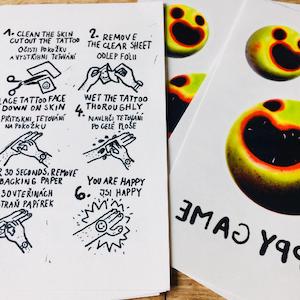 1. CLEAN THE SKIN
CUTOUT THE TATTOO
OČISTI POKOŽKU
A VYSTŘIHNI TETOVÁNÍ
2. REMOVE
THE CLEAR SHEET
ODLEP FOLII
LACE TATTOO FACE
DOWN ON SKIN
PŘITISKNI TETOVÁNÍ
NA POKOŽKU
4. WET THE TATTOO
THOROUGHLY
NAVLHČI TETOVÁNÍ
PO CELÉ PLOŠE
30 SECONDS, REMOVE
BACKING PAPER
30 VTEŘINÁCH
STRAŇ PAPÍREK
6. YOU ARE HAPPY
JSI HAPPY
PPY GAME